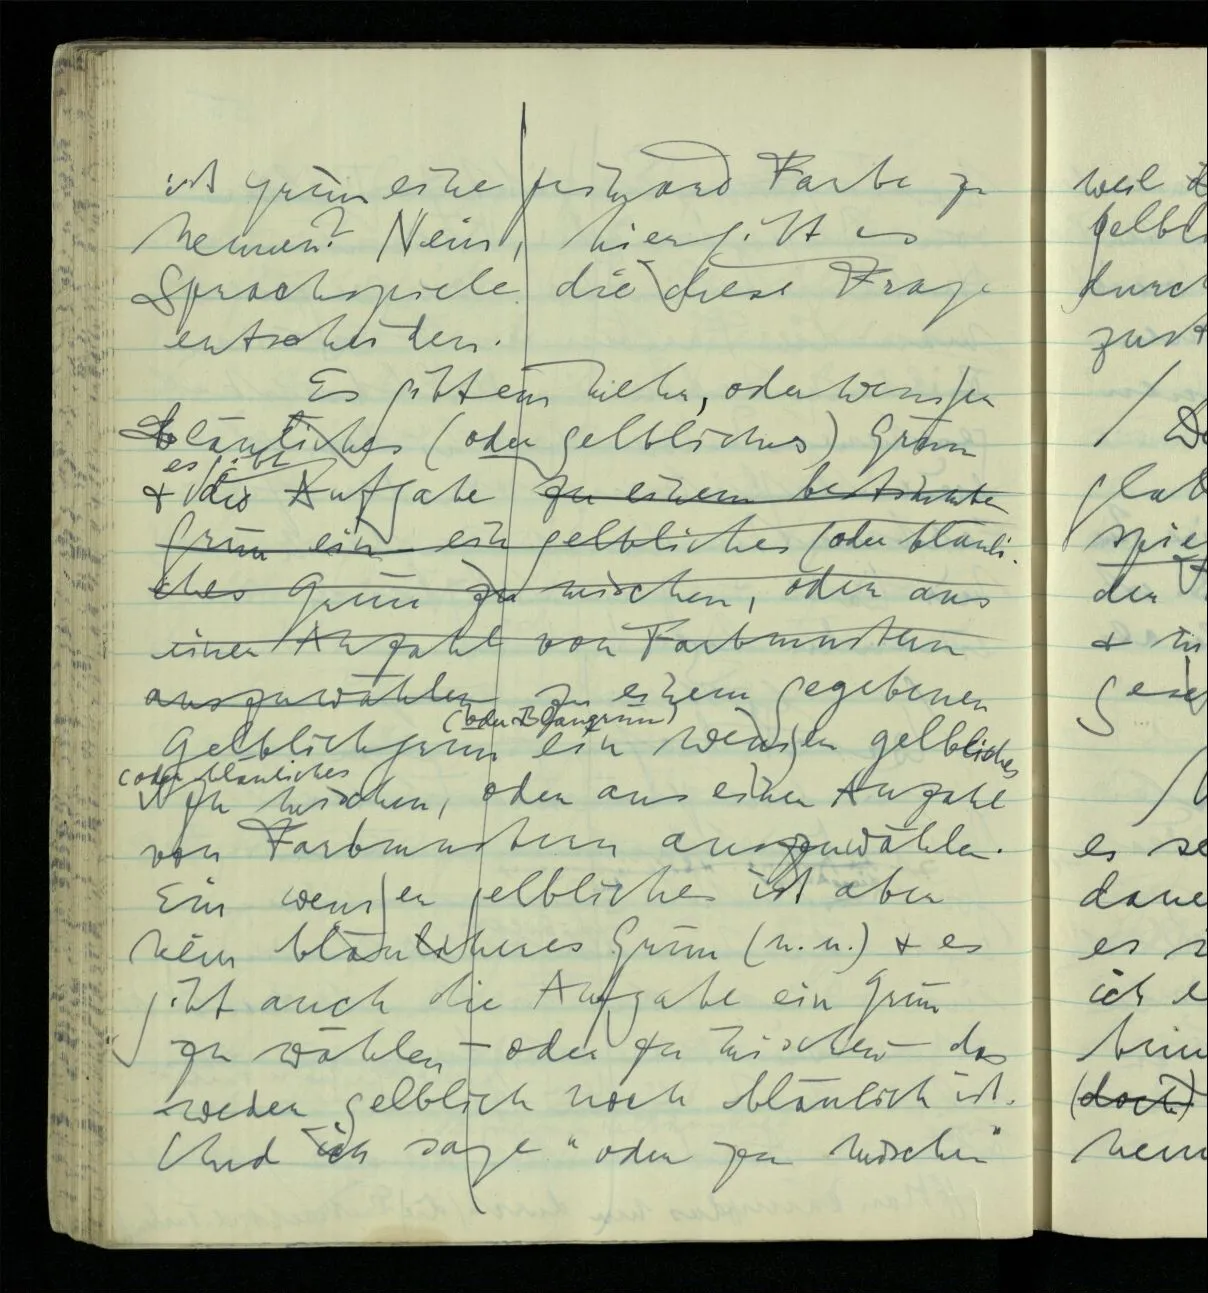 ist grün eine primäre Farbe zu
nennen? Nein, hier gibt es
Sprachspiele die diese Frage
entscheiden.
Es gibt ein mehr, oder weniger
bläuliches (oder gelbliches) Grün
es gibt
& die Aufgabe zu einem bestimmten
Grün ein ein gelbliches (oder bläuli-
ches Grün zu mischen, oder aus
einer Anzahl von Farbmustern
auszuwählen zu einem gegebenen
(oder Blaugrün)
Gelblichgrün ein weniger gelbliches
(oder bläuliches
zu mischen, oder aus einer Anzahl
von Farbmustern auszuwählen.
Ein weniger gelbliches ist aber
kein bläulicheres Grün (u. u.) & es
gibt auch die Aufgabe ein Grün
zu wählen – oder zu mischen – das
weder gelblich noch bläulich ist.
Und ich sage "oder zu mischen"
weil
gelbl
durch
es
ich
(doch)